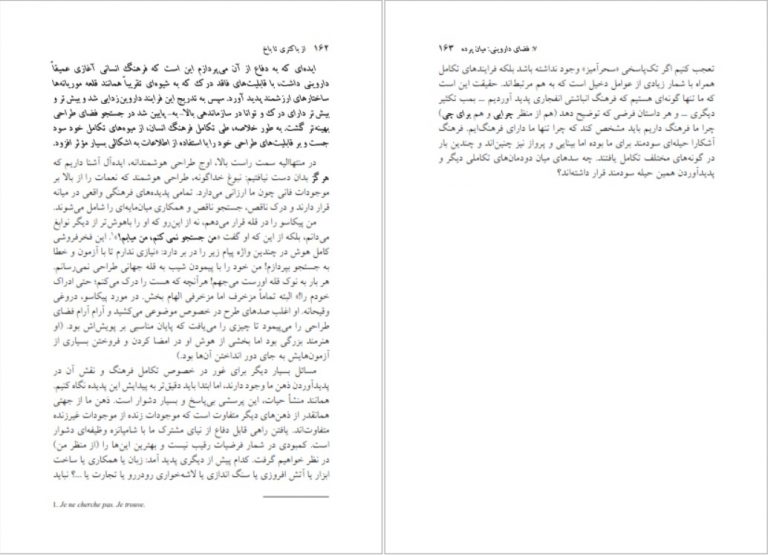 ۱۶۲ از باکتری تا باخ
ایده‌ای که به دفاع از آن می‌پردازم این است که فرهنگ انسانی آغازی عمیقاً
داروینی داشت، با قابلیت‌های فاقد درک که به شیوه‌ای تقریباً همانند قلعه موریانه‌ها
ساختارهای ارزشمند پدید آورد. سپس به تدریج این فرایند داروین‌زدایی شد و بیش تر و
بیش تر دارای درک و توانا در سازماندهی بالا-به-پایین شد در جستجوی فضای طراحی
بهینه‌تر گشت. به طور خلاصه، طی تکامل فرهنگ انسان، از میوه‌های تکامل خود سود
جست و بر قابلیت‌های طراحی خود را با استفاده از اطلاعات به اشکالی بسیار مؤثر افزود.
در منتهاالیه سمت راست بالا، اوج طراحی هوشمندانه، ایده‌آل آشنا داریم که
هرگز بدان دست نیافتیم: نبوغ خداگونه، طراحی هوشمند که نعمات را از بالا بر
موجودات فانی چون ما ارزانی می‌دارد. تمامی پدیده‌های فرهنگی واقعی در میانه
قرار دارند و درک ناقص، جستجو ناقص و همکاری میان‌مایه‌ای را شامل می‌شوند.
من پیکاسو را در قله قرار می‌دهم، نه از این‌رو که او را باهوش‌تر از دیگر نوابغ
می‌دانم، بلکه از این که او گفت «من جستجو نمی کنم، من میابم!»¹. این فخرفروشی
کامل هوش در چندین واژه پیام زیر را در بر دارد: «نیازی ندارم تا با آزمون و خطا
به جستجو بپردازم! من خود را با پیمودن شیب به قله جهانی طراحی نمی‌رسانم.
هر بار به نوک قله اورست می‌جهم! هرآنچه که هست را درک می‌کنم؛ حتی ادراک
خودم را!» البته تماماً مزخرف اما مزخرفی الهام بخش. در مورد پیکاسو، دروغی
وقیحانه. او اغلب صدهای طرح در خصوص موضوعی می‌کشید و آرام آرام فضای
طراحی را می‌پیمود تا چیزی را می‌یافت که پایان مناسبی بر پویش‌اش بود. (او
هنرمند بزرگی بود اما بخشی از هوش او در امضا کردن و فروختن بسیاری از
آزمون‌هایش به جای دور انداختن آن‌ها بود.)
مسائل بسیار دیگر برای غور در خصوص تکامل فرهنگ و نقش آن در
پدیدآوردن ذهن ما وجود دارند، اما ابتدا باید دقیق‌تر به پیدایش این پدیده نگاه کنیم.
همانند منشأ حیات، این پرسشی بی‌پاسخ و بسیار دشوار است. ذهن ما از جهتی
همانقدر از ذهن‌های دیگر متفاوت است که موجودات زنده از موجودات غیرزنده
متفاوت‌اند. یافتن راهی قابل دفاع از نیای مشترک ما با شامپانزه وظیفه‌ای دشوار
است. کمبودی در شمار فرضیات رقیب نیست و بهترین این‌ها را (از منظر من)
در نظر خواهیم گرفت. کدام پیش از دیگری پدید آمد: زبان یا همکاری یا ساخت
ابزار یا آتش افروزی یا سنگ اندازی یا لاشه‌خواری رودررو یا تجارت یا ...؟ نباید
1. Je ne cherche pas. Je trouve.
۷: فضای داروینی: میان پرده ۱۶۳
تعجب کنیم اگر تک‌پاسخی «سحرآمیز» وجود نداشته باشد بلکه فرایندهای تکامل
همراه با شمار زیادی از عوامل دخیل است که به هم مرتبط‌اند. حقیقت این است
که ما تنها گونه‌ای هستیم که فرهنگ انباشتی انفجاری پدید آوردیم ــ بمب تکثیر
دیگری ــ و هر داستان فرضی که توضیح دهد (هم از منظر چرایی و هم برای چی)
چرا ما فرهنگ داریم باید مشخص کند که چرا تنها ما دارای فرهنگ‌ایم. فرهنگ
آشکارا حیله‌ای سودمند برای ما بوده اما بینایی و پرواز نیز چنین‌اند و چندین بار
در گونه‌های مختلف تکامل یافتند. چه سدهای میان دودمان‌های تکاملی دیگر و
پدیدآوردن همین حیله سودمند قرار داشته‌اند؟